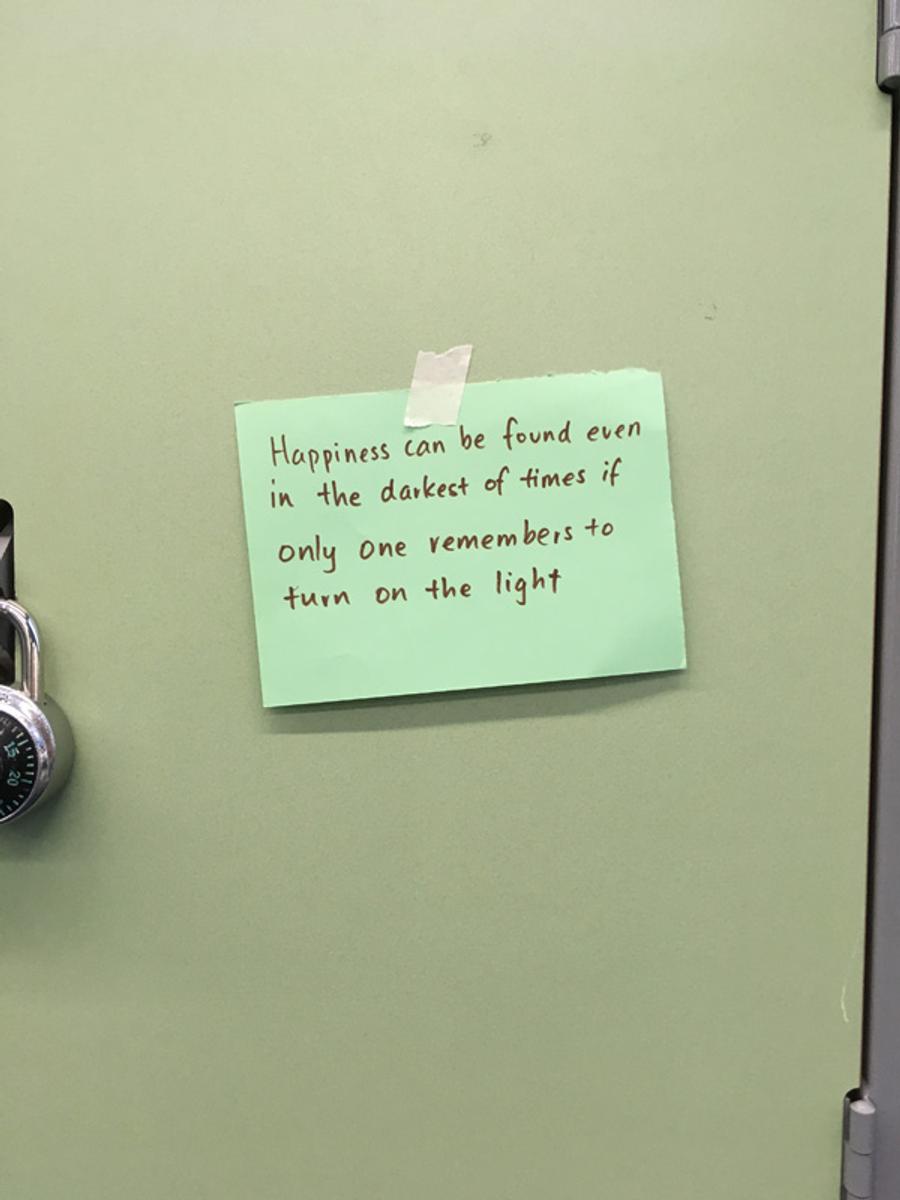 Happiness can be found even
in the darkest of times if
only one remembers to
turn on the light
15
20